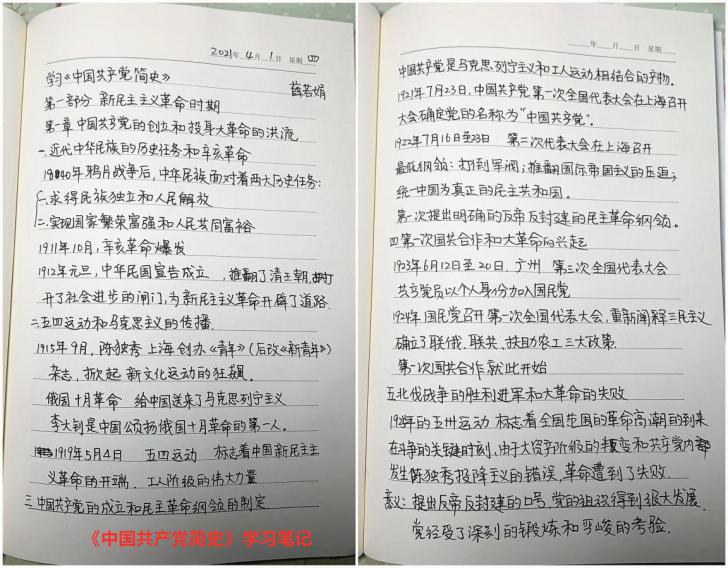 2021年4月1日 星期四
学习《中国共产党简史》 薛若娟
第一部分 新民主主义革命时期
第一章 中国共产党的创立和投身大革命的洪流
一.近代中华民族的历史任务和辛亥革命
1840年鸦片战争后,中华民族面对着两大历史任务:
一.求得民族独立和人民解放
二.实现国家繁荣富强和人民共同富裕
1911年10月,辛亥革命爆发
1912年元旦,中华民国宣告成立,推翻了清王朝,打
开了社会进步的闸门,为新民主义革命开辟了道路.
二.五四运动和马克思主义的传播.
1915年9月,陈独秀 上海 创办《青年》(后改《新青年》)
杂志,掀起 新文化运动的狂飙.
俄国十月革命 给中国送来了马克思列宁主义
李大钊是中国颂扬俄国十月革命的第一人。
1919年5月4日 五四运动 标志着中国新民主主
义革命的开端.工人阶级的伟大力量
三.中国共产党的成立和民主革命纲领的制定
《中国共产党简史》学习笔记
年 月 日 星期
中国共产党是马克思列宁主义和工人运动相结合的产物。
1921年7月23日,中国共产党第一次全国代表大会在上海召开
大会确定党的名称为“中国共产党”.
1922年7月16日至23日 第二次代表大会在上海召开
最低纲领:打到军阀;推翻国际帝国主义的压迫;
统一中国为真正的民主共和国.
第一次提出明确的反帝反封建的民主革命纲领。
四.第一次国共合作和大革命的兴起
1923年6月12日至20日.广州 第三次全国代表大会
共产党员以个人身份加入国民党
1924年国民党召开第一次全国代表大会,重新阐释三民主义
确立了联俄、联共、扶助农工三大政策.
第一次国共合作就此开始
五.北伐战争的胜利进军和大革命的失败
1925年的五卅运动 标志着全国范围的革命高潮的到来
在斗争的关键时刻,由于大资产阶级的叛变和共产党内
发生陈独秀投降主义的错误,革命遭到了失败.
意义:提出反帝反封建的口号,党的组织得到很大发展.
党经受了深刻的锻炼和严峻的考验.